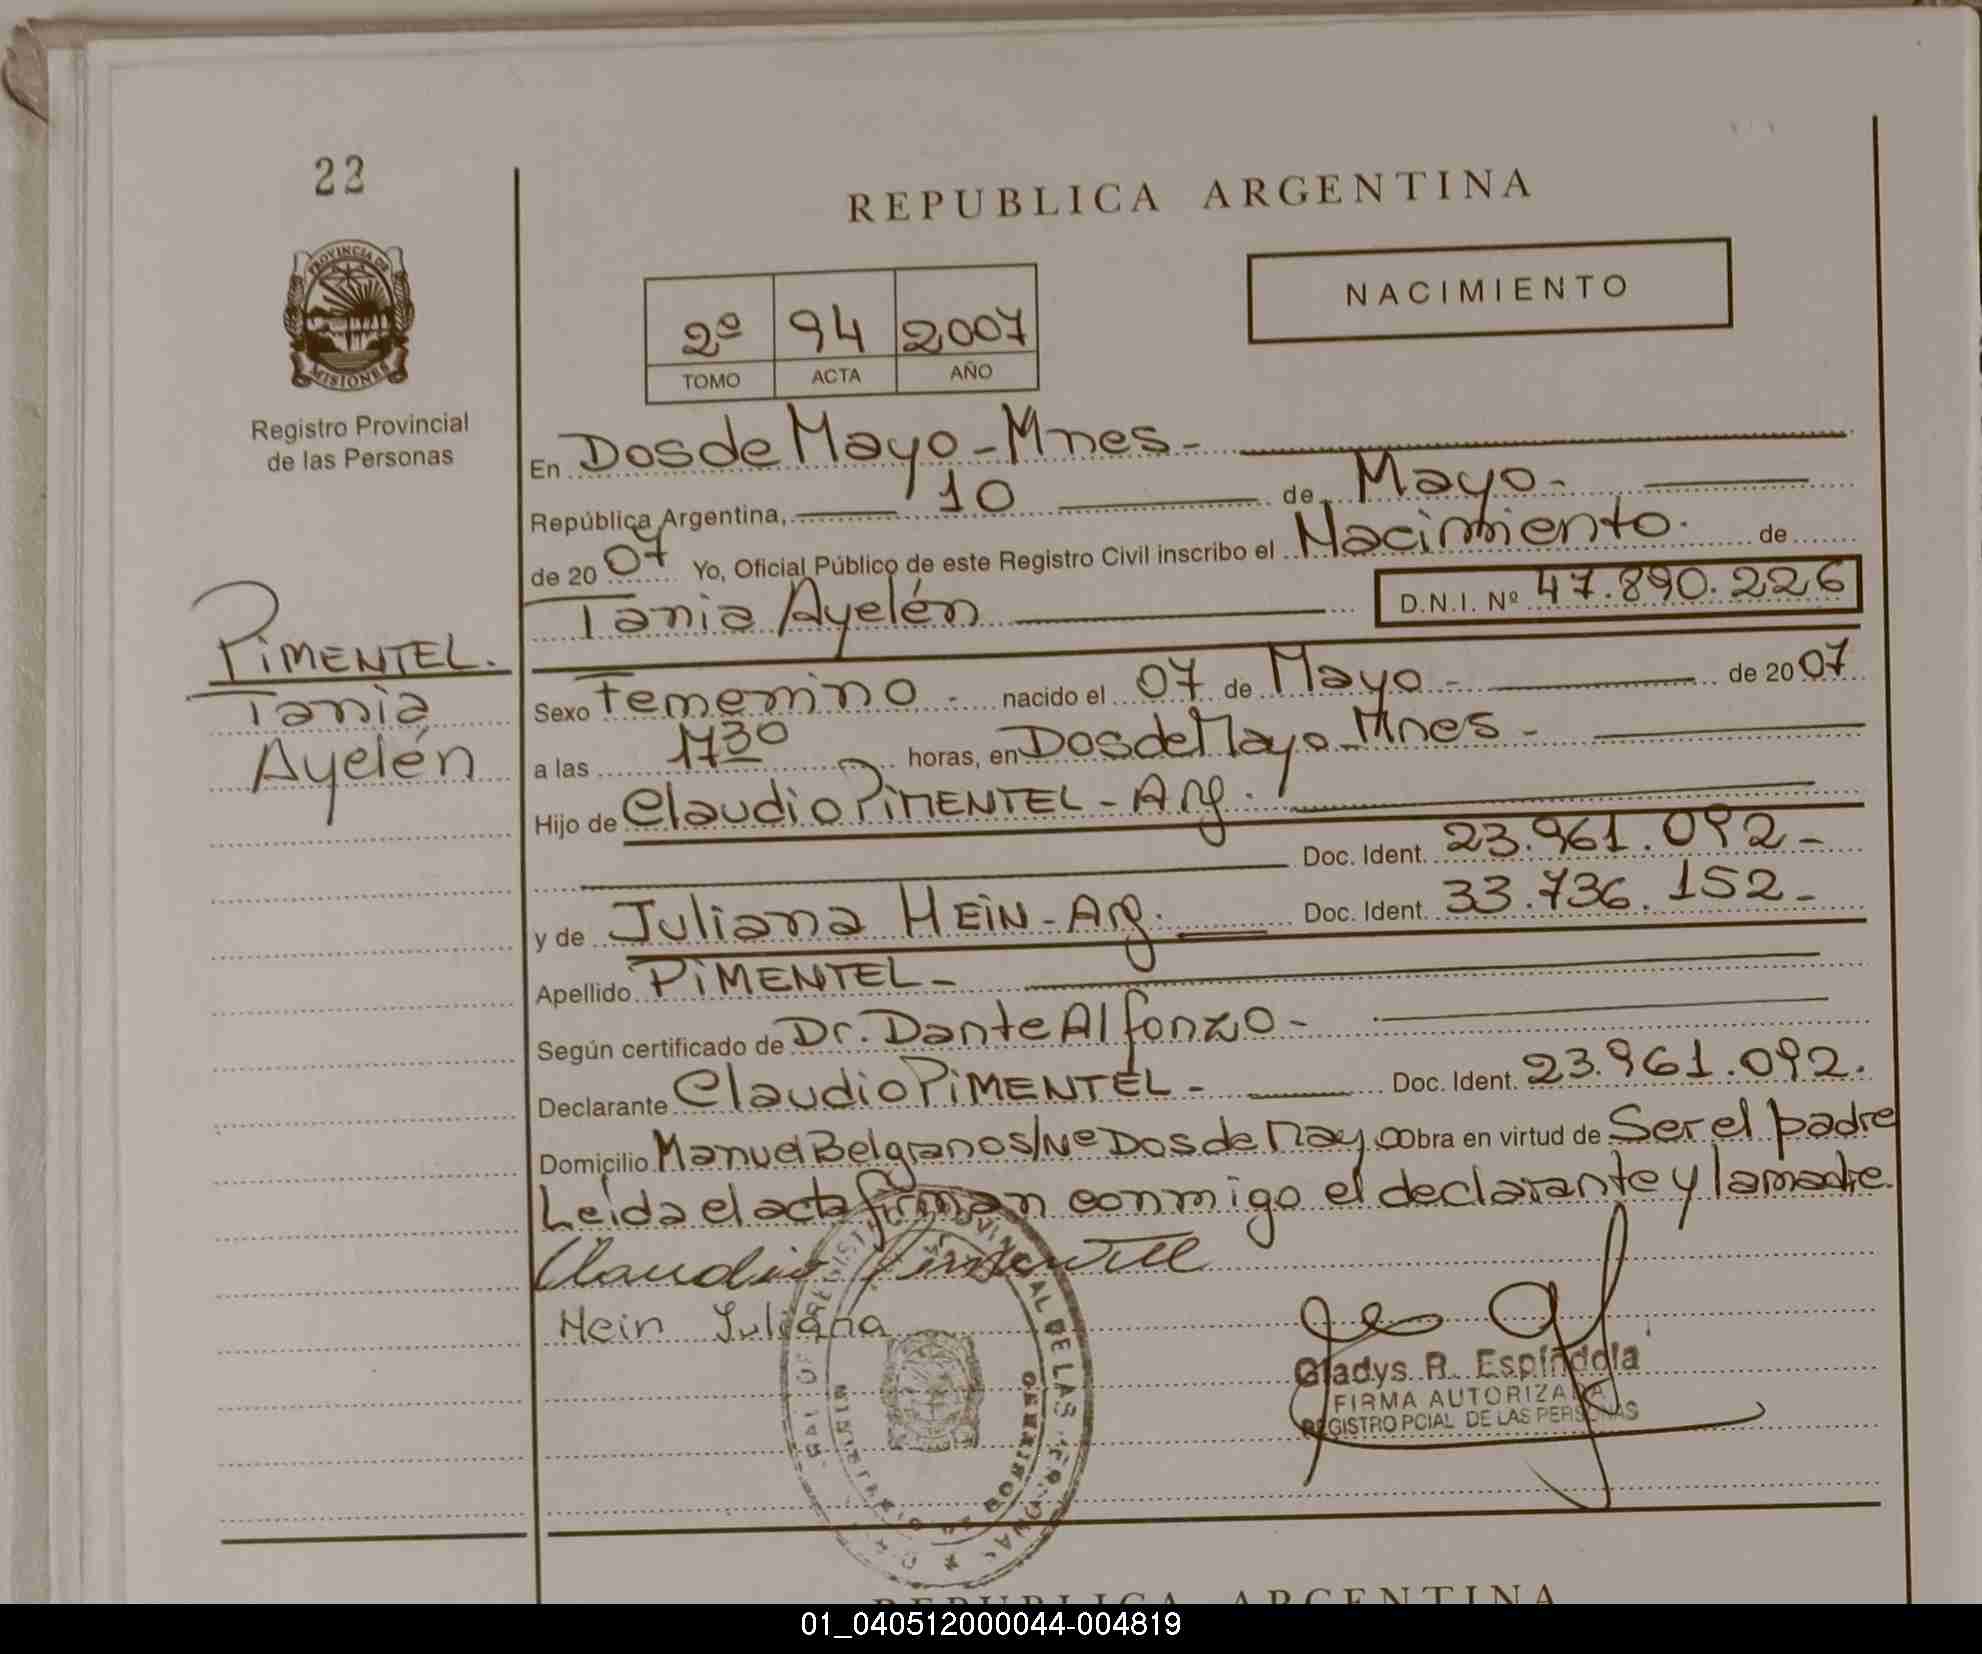 22
REPUBLICA ARGENTINA
PROVINCIA DE
MISIONES
Registro Provincial
de las Personas
NACIMIENTO
2º 94 2007
TOMO ACTA AÑO
En Dos de Mayo - Mnes -
República Argentina, 10 de Mayo -
de 2007 Yo, Oficial Público de este Registro Civil inscribo el Nacimiento. de
Tania Ayelén D.N.I. Nº 47.890.226
PIMENTEL.
Tania
Ayelén
Sexo Femenino - nacido el 07 de Mayo - de 2007
a las 1730 horas, en Dos de Mayo - Mnes -
Hijo de Claudio PIMENTEL - Arg.
Doc. Ident. 23.961.092 -
y de Juliana HEIN - Arg. Doc. Ident. 33.736.152 -
Apellido PIMENTEL -
Según certificado de Dr. Dante Alfonzo -
Declarante Claudio PIMENTEL - Doc. Ident. 23.961.092.
Domicilio Manuel Belgrano s/Nº Dos de Mayo Obra en virtud de Ser el padre
Leída el acta firman conmigo el declarante y la madre.
Claudio Pimentel
Hein Juliana
Gladys R. Espíndola
FIRMA AUTORIZADA
REGISTRO PCIAL DE LAS PERSONAS
REPUBLICA ARGENTINA
01_040512000044-004819